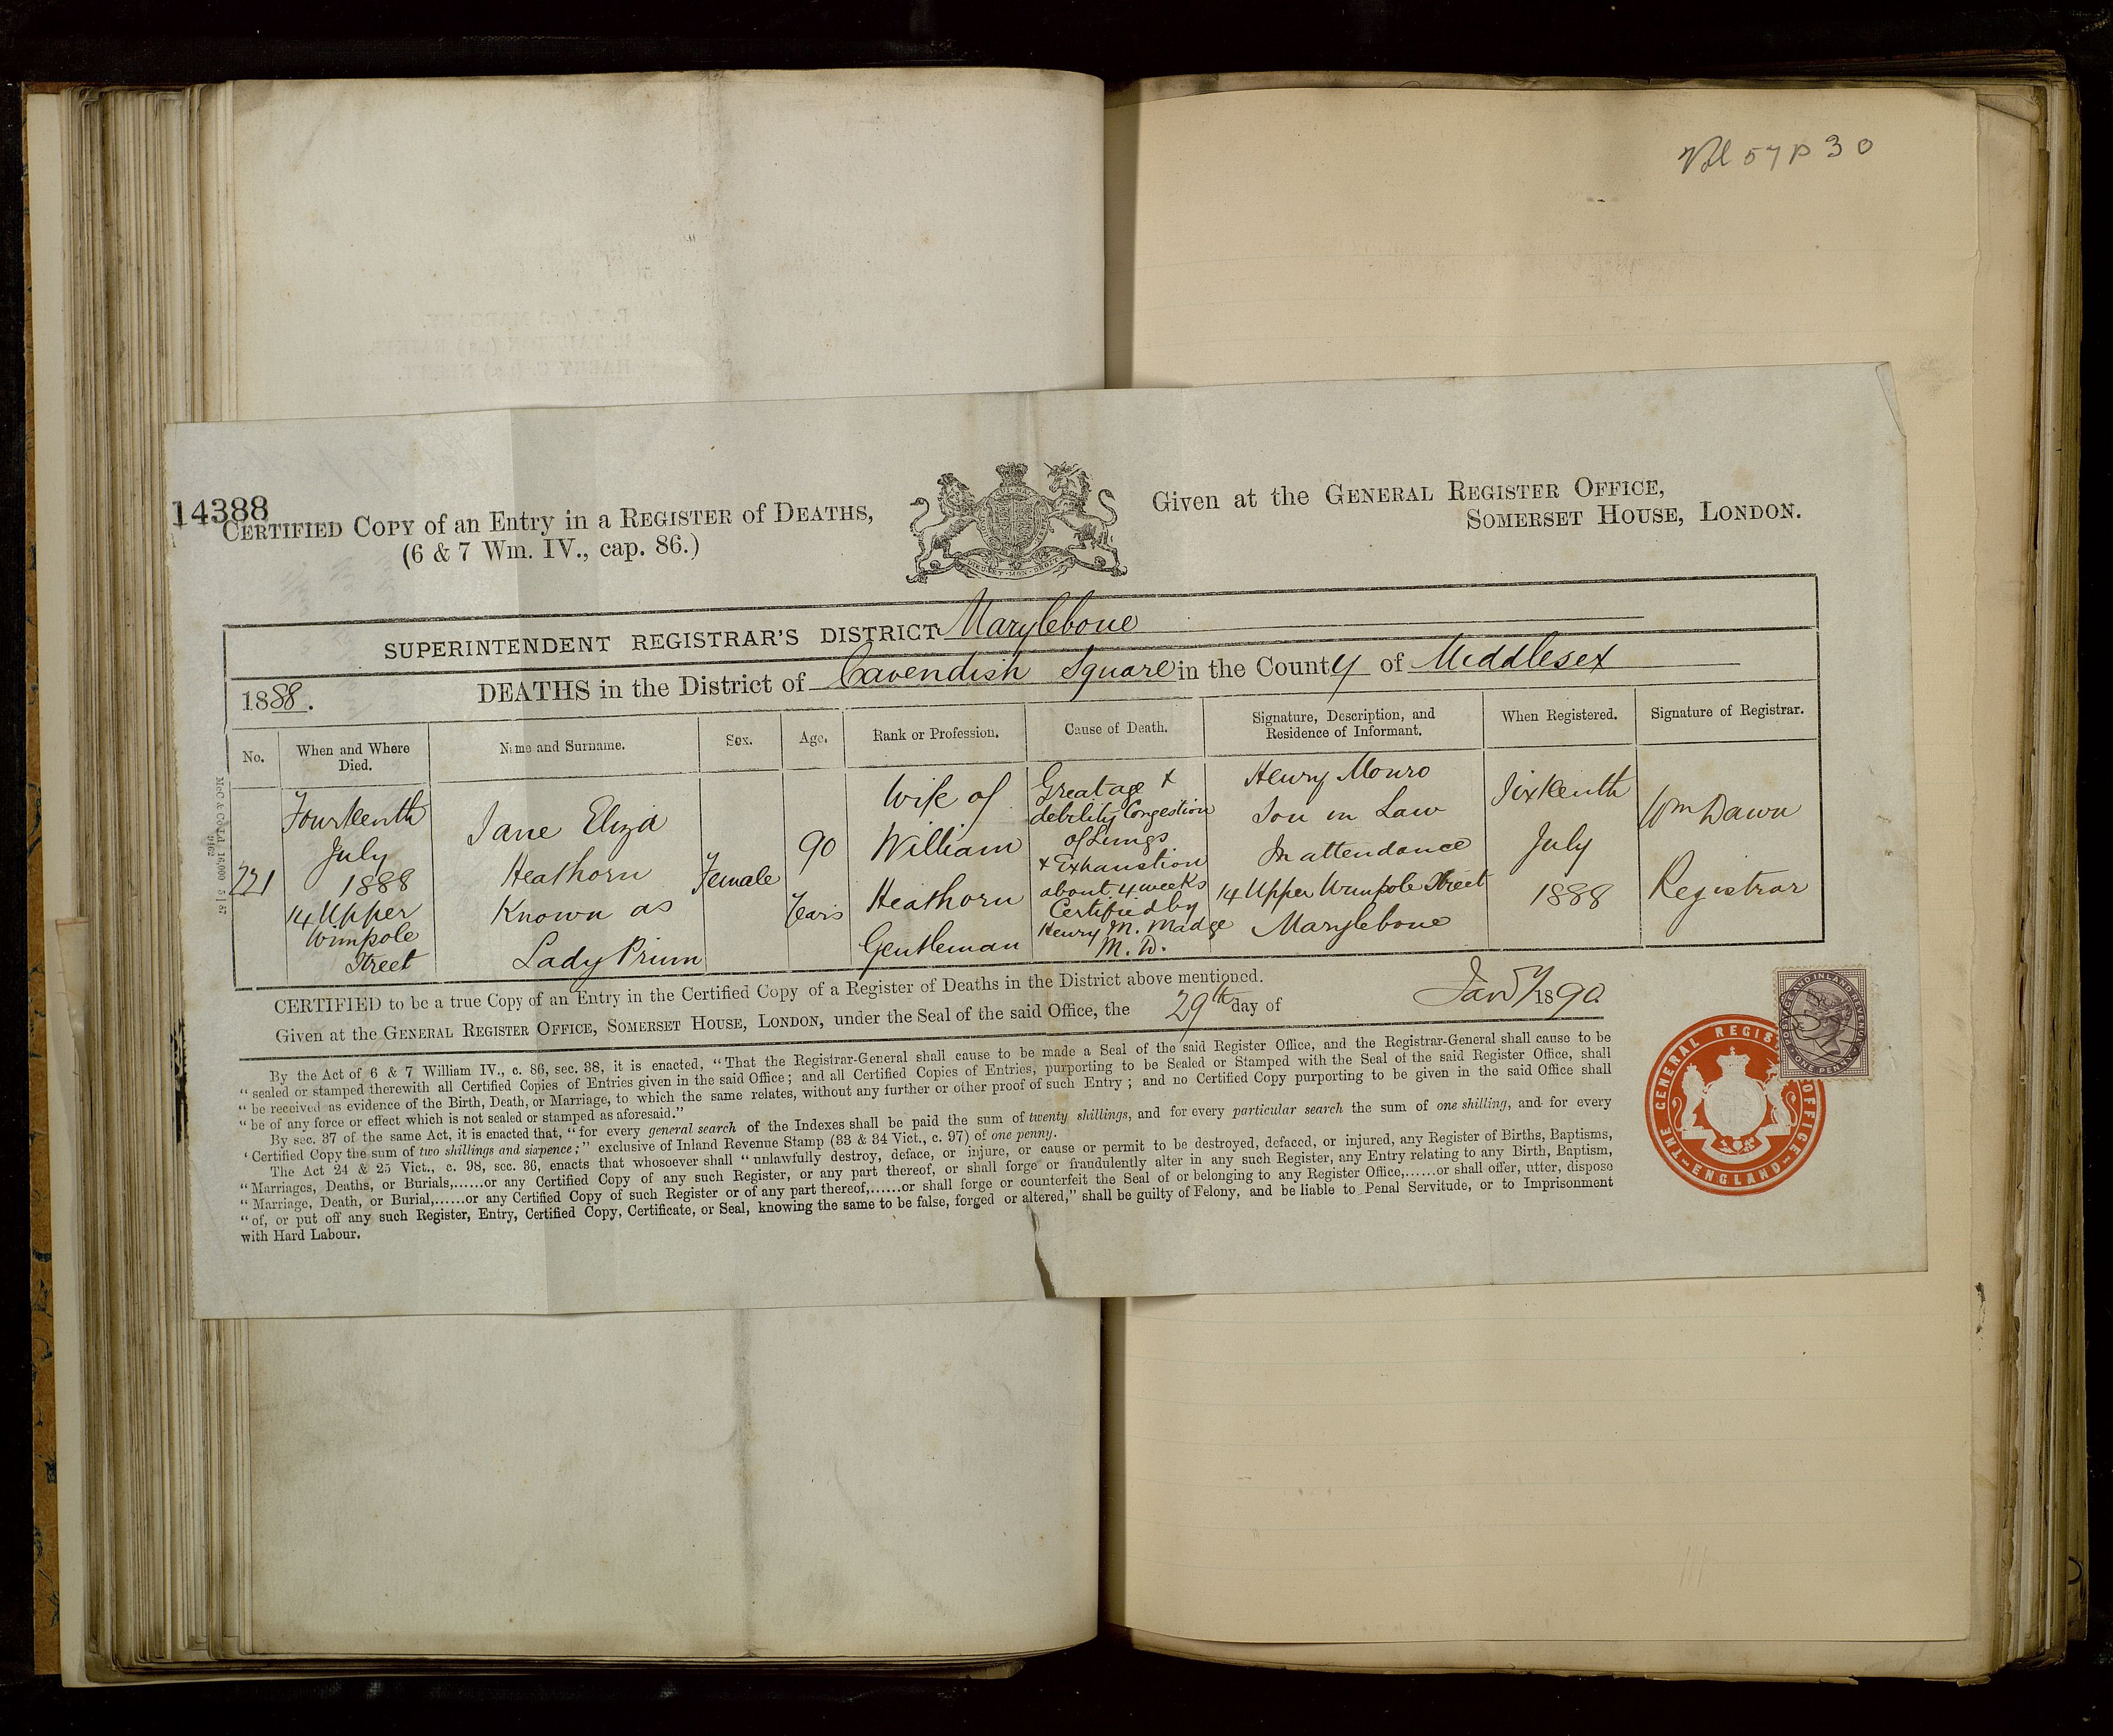 Vol 57 p 30
14388
CERTIFIED COPY of an Entry in a REGISTER of DEATHS,
(6 & 7 Wm. IV., cap. 86.)
DIEU ET MON DROIT
Given at the GENERAL REGISTER OFFICE,
SOMERSET HOUSE, LONDON.
SUPERINTENDENT REGISTRAR'S DISTRICT Marylebone
1888. DEATHS in the District of Cavendish Square in the County of Middlesex
No.
When and Where
Died.
Name and Surname.
Sex.
Age.
Rank or Profession.
Cause of Death.
Signature, Description, and
Residence of Informant.
When Registered.
Signature of Registrar.
221
Fourteenth
July
1888
14 Upper
Wimpole
Street
Jane Eliza
Heathorn
Known as
Lady Prinn
Female
90
Years
Wife of
William
Heathorn
Gentleman
Great age &
debility Congestion
of Lungs
& Exhaustion
about 4 weeks
Certified by
Henry M. Madge
M.D.
Henry Monro
Son in Law
In attendance
14 Upper Wimpole Street
Marylebone
Sixteenth
July
1888
Wm Dawn
Registrar
CERTIFIED to be a true Copy of an Entry in the Certified Copy of a Register of Deaths in the District above mentioned.
Given at the GENERAL REGISTER OFFICE, SOMERSET HOUSE, LONDON, under the Seal of the said Office, the 29th day of Jany 1890
By the Act of 6 & 7 William IV., c. 86, sec. 38, it is enacted, "That the Registrar-General shall cause to be made a Seal of the said Register Office, and the Registrar-General shall cause to be
"sealed or stamped therewith all Certified Copies of Entries given in the said Office; and all Certified Copies of Entries, purporting to be Sealed or Stamped with the Seal of the said Register Office, shall
"be received as evidence of the Birth, Death, or Marriage, to which the same relates, without any further or other proof of such Entry; and no Certified Copy purporting to be given in the said Office shall
"be of any force or effect which is not sealed or stamped as aforesaid."
By sec. 37 of the same Act, it is enacted that, "for every general search of the Indexes shall be paid the sum of twenty shillings, and for every particular search the sum of one shilling, and for every
'Certified Copy the sum of two shillings and sixpence;" exclusive of Inland Revenue Stamp (33 & 34 Vict., c. 97) of one penny.
The Act 24 & 25 Vict., c. 98, sec. 36, enacts that whosoever shall "unlawfully destroy, deface, or injure, or cause or permit to be destroyed, defaced, or injured, any Register of Births, Baptisms,
"Marriages, Deaths, or Burials,......or any Certified Copy of any such Register, or any part thereof, or shall forge or fraudulently alter in any such Register, any Entry relating to any Birth, Baptism,
"Marriage, Death, or Burial,......or any Certified Copy of such Register or of any part thereof,......or shall forge or counterfeit the Seal of or belonging to any Register Office,......or shall offer, utter, dispose
"of, or put off any such Register, Entry, Certified Copy, Certificate, or Seal, knowing the same to be false, forged or altered," shall be guilty of Felony, and be liable to Penal Servitude, or to Imprisonment
with Hard Labour.
THE GENERAL REGISTER OFFICE ENGLAND
POSTAGE AND INLAND REVENUE
ONE PENNY